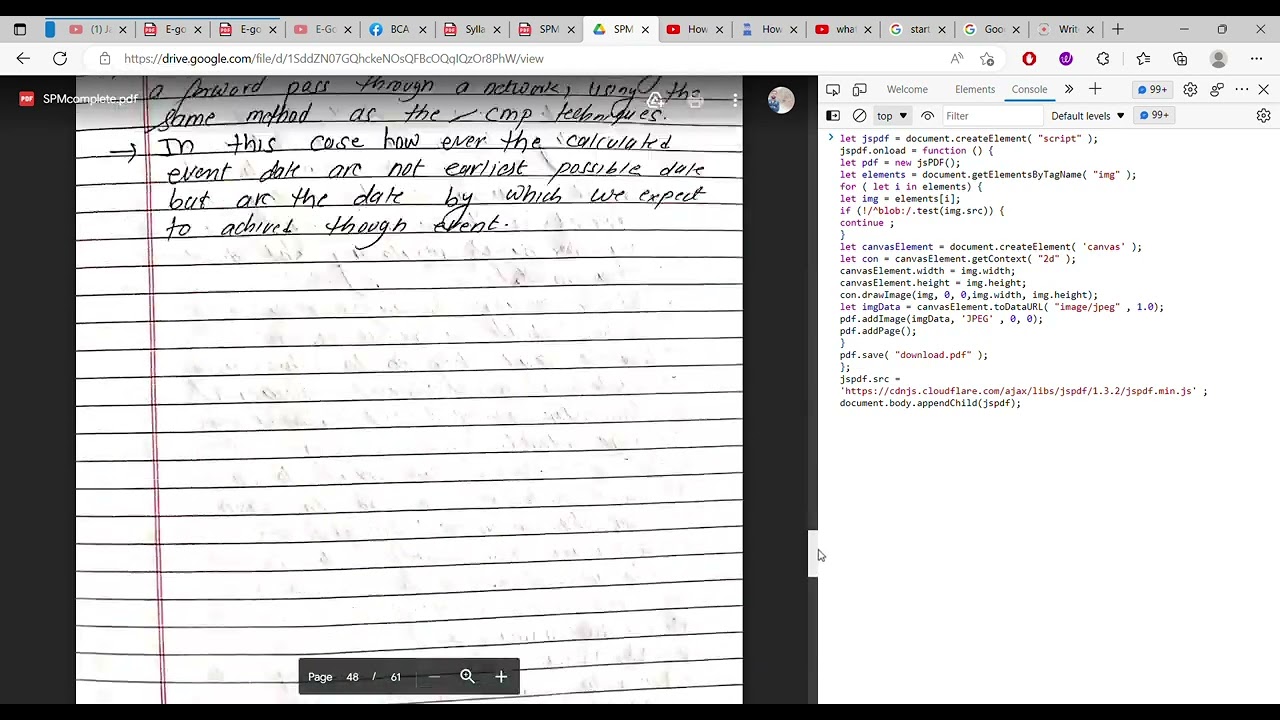 (1) Ja
E-go
E-go
E-Go
BCA
Sylla
SPM
SPM
How
How
what
start
Goo
Write
https://drive.google.com/file/d/1SddZN07GQhckeNOsQFBcOQqIQzOr8PhW/view
99+
SPMcomplete.pdf
a forward pass through a network, using the
same method as the cmp techniques.
→ In this case how ever the calculated
event date are not earliest possible date
but are the date by which we expect
to achived though event.
Page 48 / 61
Welcome Elements Console 99+
top Filter Default levels 99+
let jspdf = document.createElement( "script" );
jspdf.onload = function () {
let pdf = new jsPDF();
let elements = document.getElementsByTagName( "img" );
for ( let i in elements) {
let img = elements[i];
if (!/^blob:/.test(img.src)) {
continue ;
}
let canvasElement = document.createElement( 'canvas' );
let con = canvasElement.getContext( "2d" );
canvasElement.width = img.width;
canvasElement.height = img.height;
con.drawImage(img, 0, 0,img.width, img.height);
let imgData = canvasElement.toDataURL( "image/jpeg" , 1.0);
pdf.addImage(imgData, 'JPEG' , 0, 0);
pdf.addPage();
}
pdf.save( "download.pdf" );
};
jspdf.src =
'https://cdnjs.cloudflare.com/ajax/libs/jspdf/1.3.2/jspdf.min.js' ;
document.body.appendChild(jspdf);